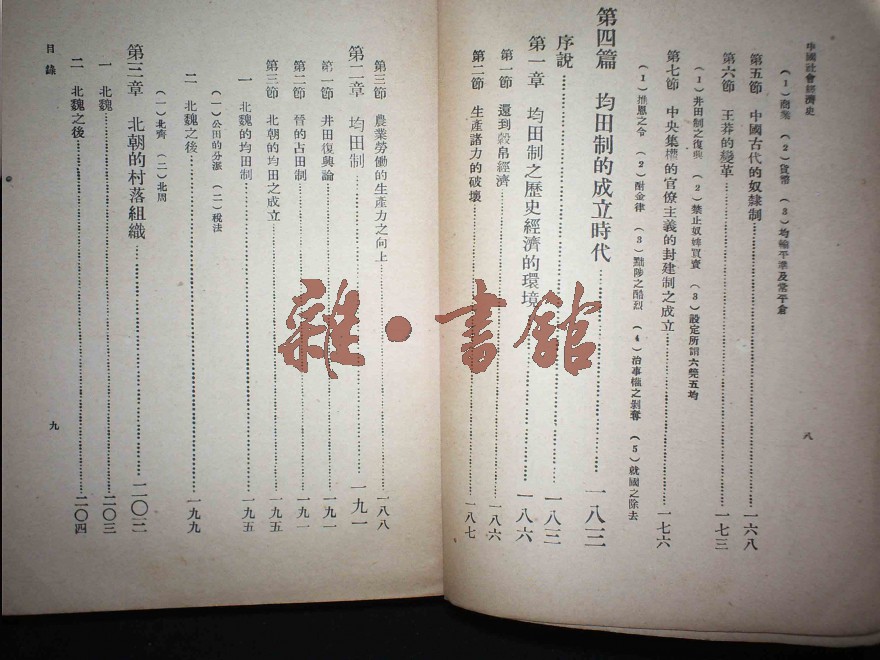 中國社會經濟史
八
（1）商業 （2）貨幣 （3）均輸平準及常平倉
第五節 中國古代的奴隸制……一六八
第六節 王莽的變革……一七三
（1）井田制之復興 （2）禁止奴婢買賣 （3）設定所謂六筦五均
第七節 中央集權的官僚主義的封建制之成立……一七六
（1）推恩之令 （2）酎金律 （3）黜陟之酷烈 （4）治事權之剝奪 （5）就國之除去
第四篇 均田制的成立時代……一八三
序說……一八三
第一章 均田制之歷史經濟的環境……一八六
第一節 還到穀帛經濟……一八六
第二節 生產諸力的破壞……一八七
第三節 農業勞働的生產力之向上……一八八
第二章 均田制……一九一
第一節 井田復興論……一九一
第二節 晉的占田制……一九一
第三節 北朝的均田之成立……一九五
一 北魏的均田制……一九五
二 北魏之後……一九九
（一）公田的分派 （二）稅法
（一）北齊 （二）北周
第三章 北朝的村落組織……二〇三
一 北魏……二〇三
二 北魏之後……二〇四
目錄
九
雜·書館